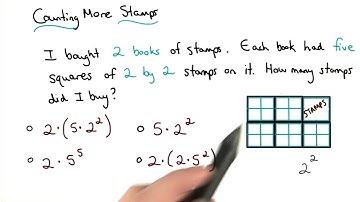 Counting More Stamps
I bought 2 books of stamps. Each book had five
squares of 2 by 2 stamps on it. How many stamps
did I buy?
2·(5·2²)
5·2²
STAMPS
2·5⁵
2·(2·5²)
2²